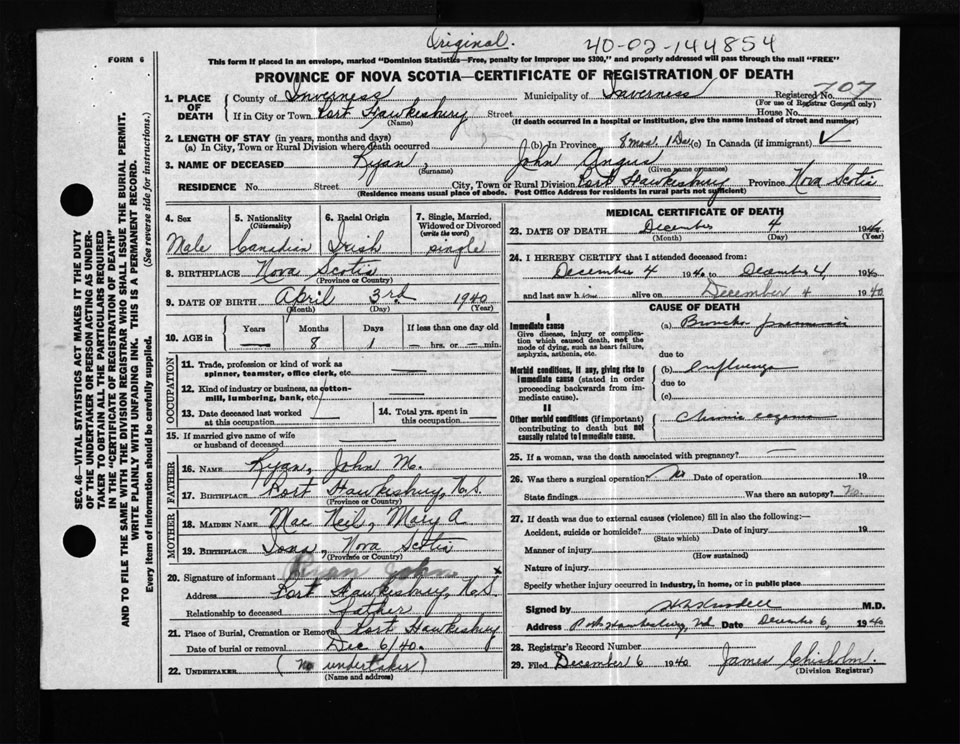 Original.
40-02-144854
FORM 6
This form if placed in an envelope, marked "Dominion Statistics—Free, penalty for improper use $300," and properly addressed will pass through the mail "FREE"
PROVINCE OF NOVA SCOTIA—CERTIFICATE OF REGISTRATION OF DEATH
SEC. 46—VITAL STATISTICS ACT MAKES IT THE DUTY
OF THE UNDERTAKER OR PERSON ACTING AS UNDER-
TAKER TO OBTAIN ALL THE PARTICULARS REQUIRED
IN THE "CERTIFICATE OF REGISTRATION OF DEATH"
AND TO FILE THE SAME WITH THE DIVISION REGISTRAR WHO SHALL ISSUE THE BURIAL PERMIT.
WRITE PLAINLY WITH UNFADING INK. THIS IS A PERMANENT RECORD.
Every item of information should be carefully supplied. (See reverse side for instructions.)
1. PLACE OF DEATH County of Inverness Municipality of Inverness Registered No. 707
(For use of Registrar General only)
If in City or Town Port Hawkesbury Street House No.
(Name) (If death occurred in a hospital or institution, give the name instead of street and number)
2. LENGTH OF STAY (in years, months and days)
(a) In City, Town or Rural Division where death occurred (b) In Province 8 mos. 1 Day (c) In Canada (if immigrant)
3. NAME OF DECEASED Ryan, John Angus
(Surname) (Given name or names)
RESIDENCE No. Street City, Town or Rural Division Port Hawkesbury Province Nova Scotia
(Residence means usual place of abode. Post Office Address for residents in rural parts not sufficient)
4. Sex 5. Nationality (Citizenship) 6. Racial Origin 7. Single, Married, Widowed or Divorced (write the word)
Male Canadian Irish single
8. BIRTHPLACE Nova Scotia
(Province or Country)
9. DATE OF BIRTH April 3rd 1940
(Month) (Day) (Year)
10. AGE in Years Months Days If less than one day old
— 8 1 — hrs. or — min.
OCCUPATION
11. Trade, profession or kind of work as spinner, teamster, office clerk, etc. —
12. Kind of industry or business, as cotton-mill, lumbering, bank, etc. —
13. Date deceased last worked at this occupation — 14. Total yrs. spent in this occupation
15. If married give name of wife or husband of deceased —
FATHER
16. NAME Ryan, John M.
17. BIRTHPLACE Port Hawkesbury, N.S.
(Province or Country)
MOTHER
18. MAIDEN NAME Mac Neil, Mary A
19. BIRTHPLACE Iona, Nova Scotia
(Province or Country)
20. Signature of informant Ryan John x
Address Port Hawkesbury, N.S.
Relationship to deceased father
21. Place of Burial, Cremation or Removal Port Hawkesbury
Date of burial or removal Dec 6/40.
22. UNDERTAKER (no undertaker)
(Name and address)
MEDICAL CERTIFICATE OF DEATH
23. DATE OF DEATH December 4 1940
(Month) (Day) (Year)
24. I HEREBY CERTIFY that I attended deceased from:
December 4 1940 to December 4, 1940
and last saw him alive on December 4 1940
CAUSE OF DEATH
I
Immediate cause
Give disease, injury or complication which caused death, not the mode of dying, such as heart failure, asphyxia, asthenia, etc.
(a) Broncho pneumonia
due to
Morbid conditions, if any, giving rise to immediate cause (stated in order proceeding backwards from immediate cause).
(b) Influenza
due to
(c)
II
Other morbid conditions (if important) contributing to death but not causally related to immediate cause.
Chronic eczema
25. If a woman, was the death associated with pregnancy? —
26. Was there a surgical operation? No Date of operation 19
State findings Was there an autopsy? No.
27. If death was due to external causes (violence) fill in also the following:—
Accident, suicide or homicide? Date of injury 19
(State which)
Manner of injury
(How sustained)
Nature of injury
Specify whether injury occurred in industry, in home, or in public place
Signed by M.D.
Address Port Hawkesbury, Date December 6, 1940
28. Registrar's Record Number
29. Filed December 6 1940 James Chisholm.
(Division Registrar)